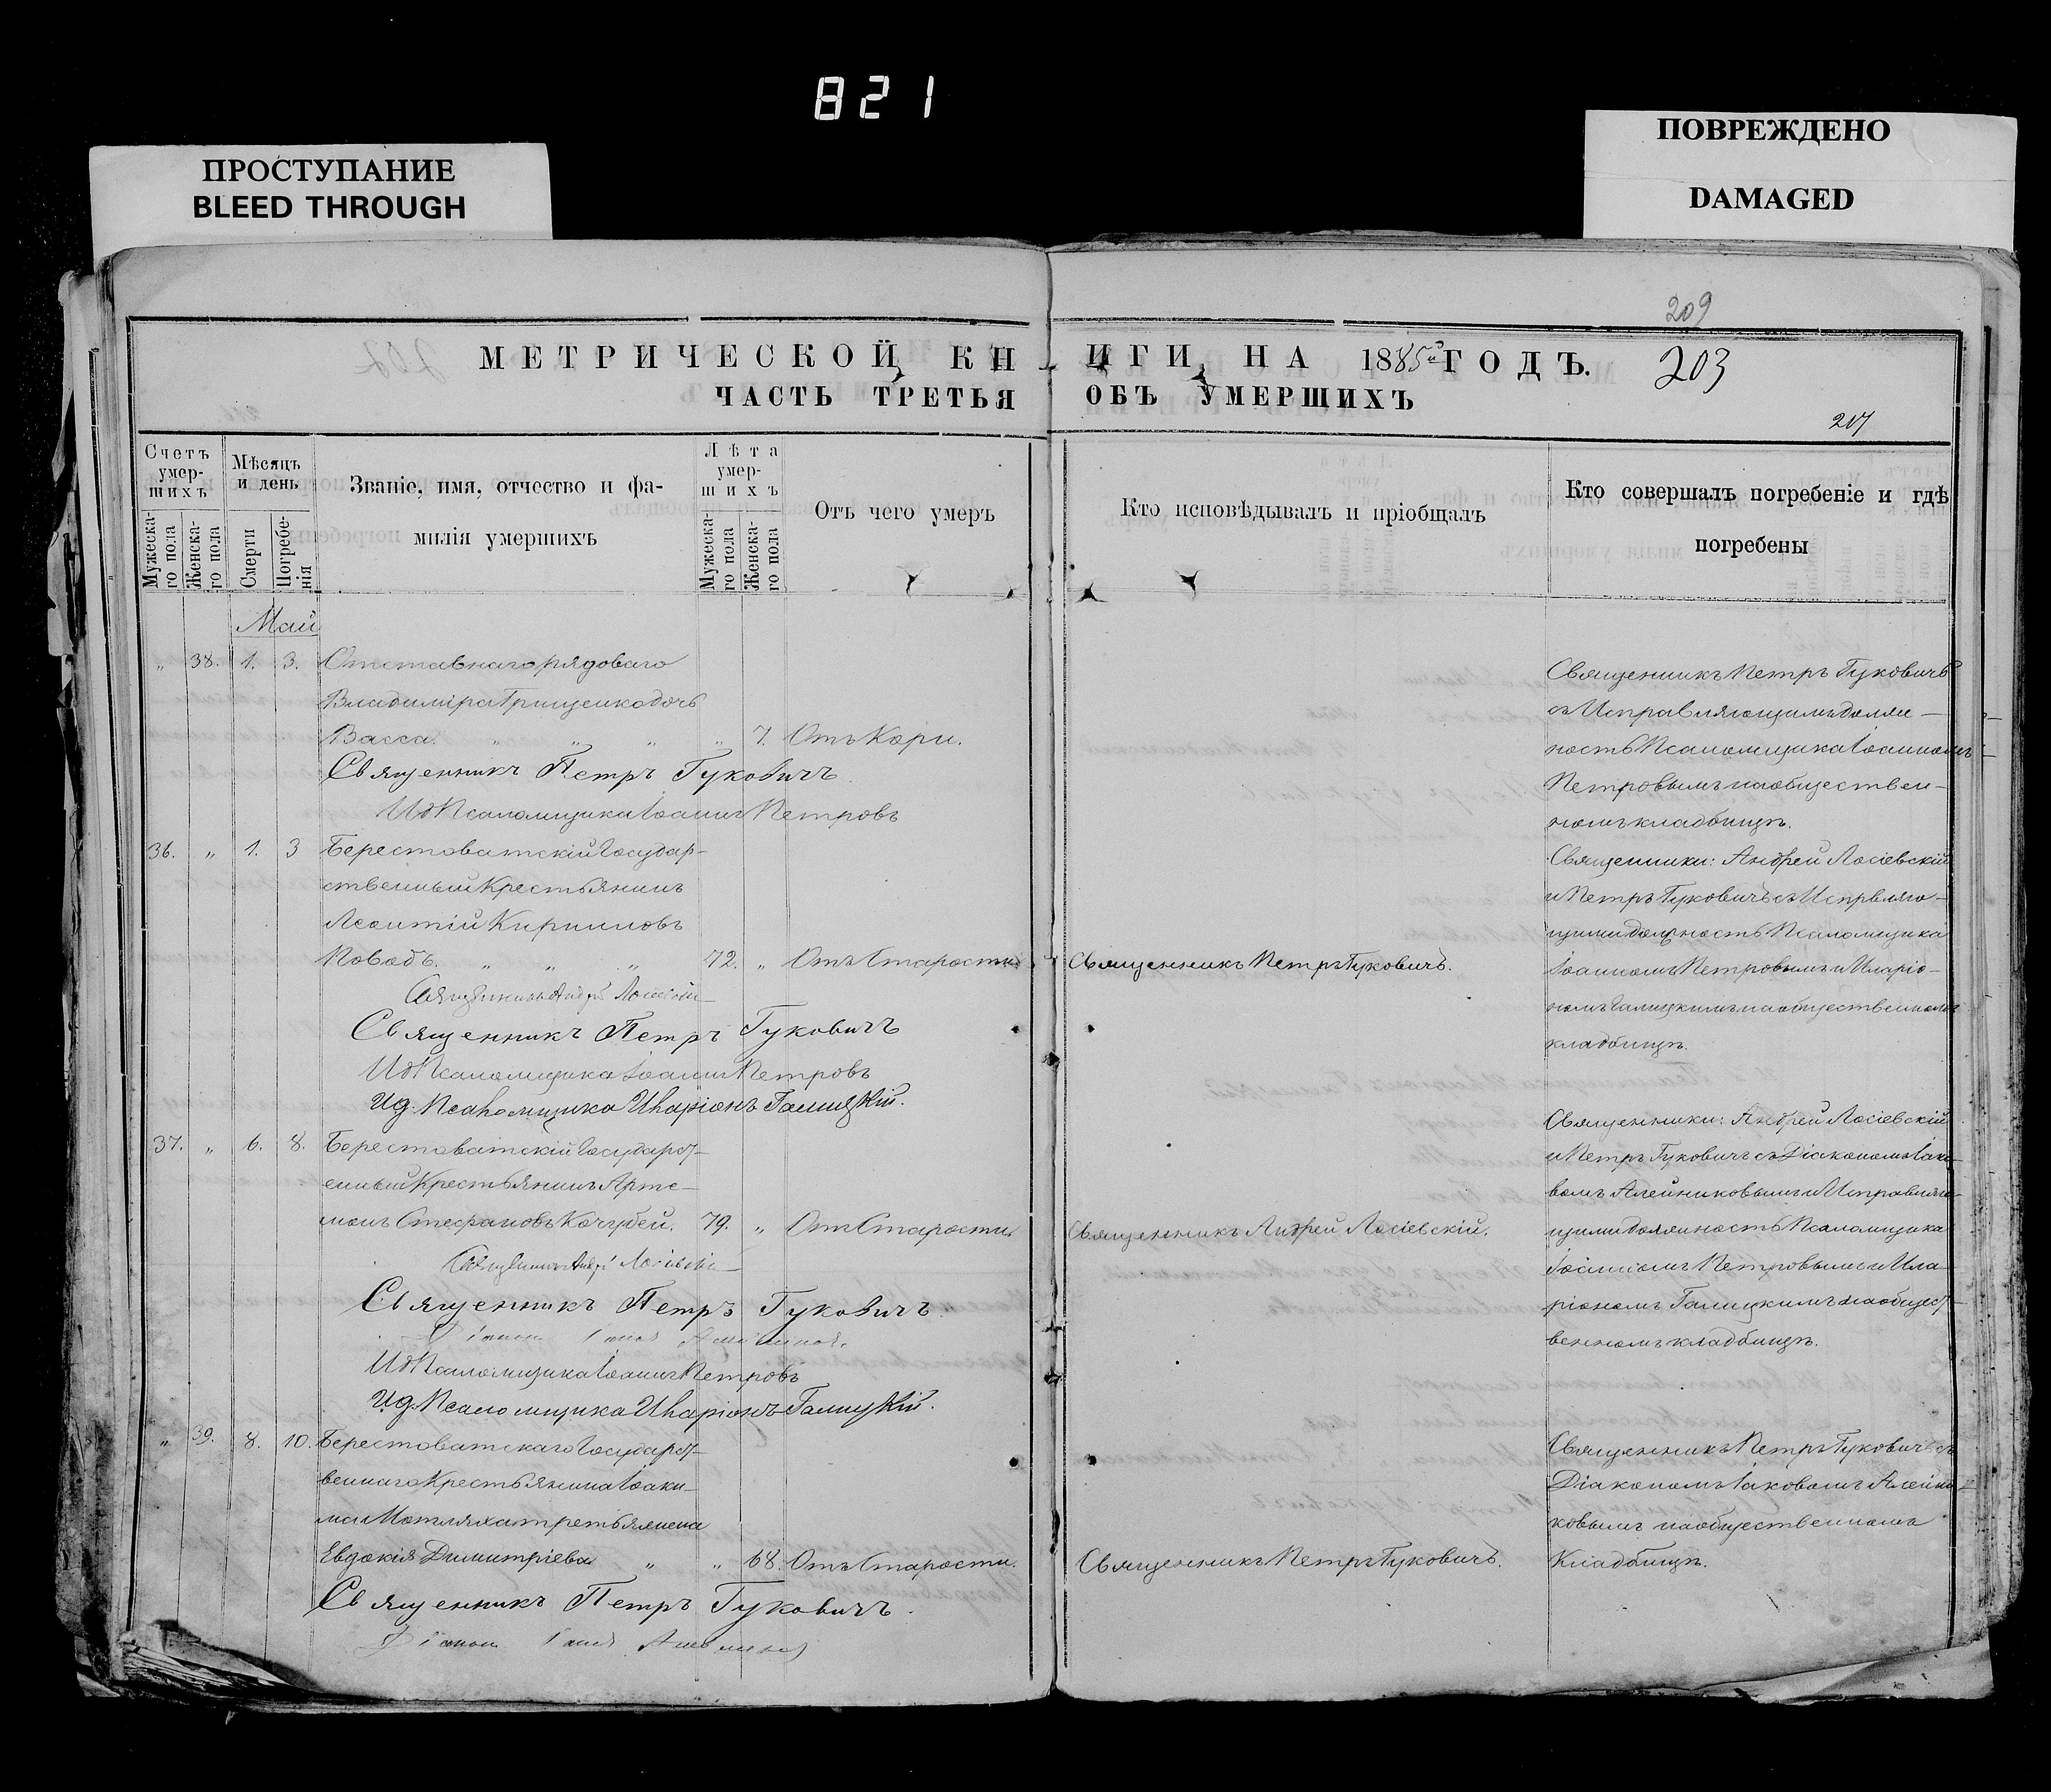 821
ПРОСТУПАНИЕ
BLEED THROUGH
ПОВРЕЖДЕНО
DAMAGED
209
МЕТРИЧЕСКОЙ КНИГИ, НА 1885й ГОДЪ. 203
ЧАСТЬ ТРЕТЬЯ ОБЪ УМЕРШИХЪ
207
Счетъ умер-шихъ
Мужеска-го пола
Женска-го пола
Мѣсяцъ и день
Смерти
Погребе-нія
Званіе, имя, отчество и фа-
милія умершихъ
Лѣта умер-шихъ
Мужеска-го пола
Женска-го пола
Отъ чего умеръ
Кто исповѣдывалъ и пріобщалъ
Кто совершалъ погребеніе и гдѣ
погребены
Май
„ 38. 1. 3. Отставнаго рядоваго
Владиміра Грищенко дочь
Васса. „ „ „ „ 7. Отъ Кори.
Священникъ Петръ Гуковичъ
ИдПсаломщика Іоаннъ Петровъ
Священникъ Петръ Гуковичъ
съ Исправляющимъ долж-
ность Псаломщика Іоанномъ
Петровымъ на обществен-
номъ кладбищѣ.
36. „ 1. 3 Берестоватскій Государ-
ственный Крестьянинъ
Леонтій Кирилловъ
Новобъ. „ „ „ 72. „ Отъ Старости. Священникъ Петръ Гуковичъ.
Священникъ Андрей Лосіевскій
Священникъ Петръ Гуковичъ
ИдПсаломщика Іоаннъ Петровъ
Ид. Псаломщика Иларіонъ Галицкій.
Священники: Андрей Лосіевскій
и Петръ Гуковичъ съ Испрвляю-
щими должность Псаломщика
Іоанномъ Петровымъ и Иларіо-
номъ Галицкимъ на общественномъ
кладбищѣ.
37. „ 6. 8. Берестоватскій Государст-
енный Крестьянинъ Арте-
монъ Стефановъ Кочубей. 79. „ Отъ Старости. Священникъ Андрей Лосіевскій.
Священникъ Андрей Лосіевскій
Священникъ Петръ Гуковичъ.
ИдПсаломщика Іоаннъ Петровъ
Ид. Псаломщика Иларіонъ Галицкій.
Священники: Андрей Лосіевскій
и Петръ Гуковичъ съ Діакономъ Іако-
вомъ Алейниковымъ и Исправляю-
щими должность Псаломщика
Іоанномъ Петровымъ и Ила-
ріономъ Галицкимъ на общест-
венномъ кладбищѣ.
„ 39. 8. 10. Берестоватскаго Государст-
веннаго Крестьянина Іоаки-
ма Мотляха третья жена
Евдокія Димитріева „ „ 68. Отъ Старости. Священникъ Петръ Гуковичъ.
Священникъ Петръ Гуковичъ.
Священникъ Петръ Гуковичъ съ
Діакономъ Іаковомъ Алейни-
ковымъ на общественномъ
Кладбищѣ.